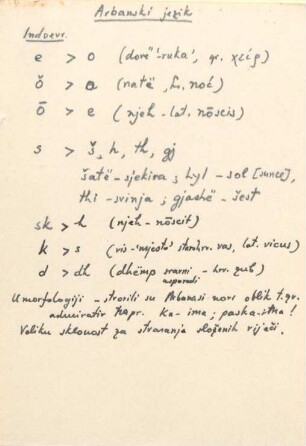 Arbanski jezik
Indoevr.
e > o (dorë "ruka", gr. χείρ)
ŏ > a (natë, noć)
ō > e (njeh - lat. nōscis)
s > š, h, th, gj
šatë - sjekira; hyl - sol [sunce],
thi - svinja; gjashë - šest
sk > h (njeh - nōscit)
k > s (vis - 'mjesto' starohrv. vas, lat. vicus)
d > dh (dhëmp sravni - hrv. zub)
usporedi
U morfologiji - stvorili su Arbanasi novi oblik t.zv.
admirativ napr. Ka - ima; paska - !
Veliku sklonost za stvaranja složenih riječi.